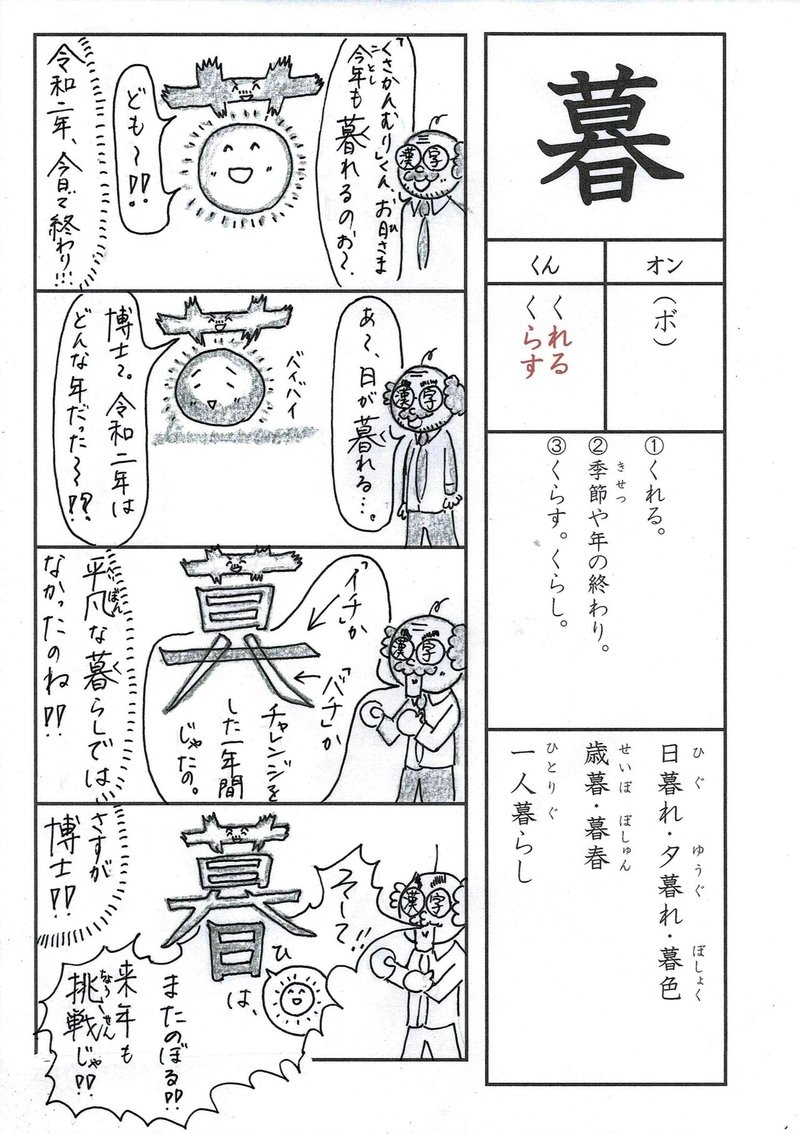 暮
オン
(ボ)
くん
くれる
くらす
①くれる。
きせつ
②季節や年の終わり。
③くらす。くらし。
ひぐ ゆうぐ ぼしょく
日暮れ・夕暮れ・暮色
せいぼ ぼしゅん
歳暮・暮春
ひとりぐ
一人暮らし
漢字
「くさかんむり」くん、お日さま
ひ
ことし
今年も暮れるのお〜。
く
ども〜!!
令和二年、今日で終わり!!!
漢字
あ〜、日が暮れる…。
く
バイバイ
博士〜。令和二年は
どんな年だった〜!?
漢字
「イチ」か
「バチ」か
チャレンジを
した一年間
じゃたの。
昊
へいぼん
平凡な暮らしでは
く
なかったのね!!
漢字
そして!!
暮
ひ
は、
またのぼる!!
来年も
ちょうせん
挑戦じゃ!!
さすが
博士!!